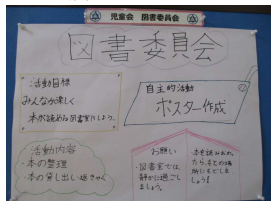 児童会 図書委員会
図書委員会
活動目標
みんなが楽しく
本が読める図書室にしよう。
自主的活動
ポスター作成
活動内容
・本の整理
・本の貸し出し・返きゃく
お願い
・図書室では、
静かに過ごし
ましょう。
・本を読みおわっ
たら、もとの場
所にもどしま
しょう!